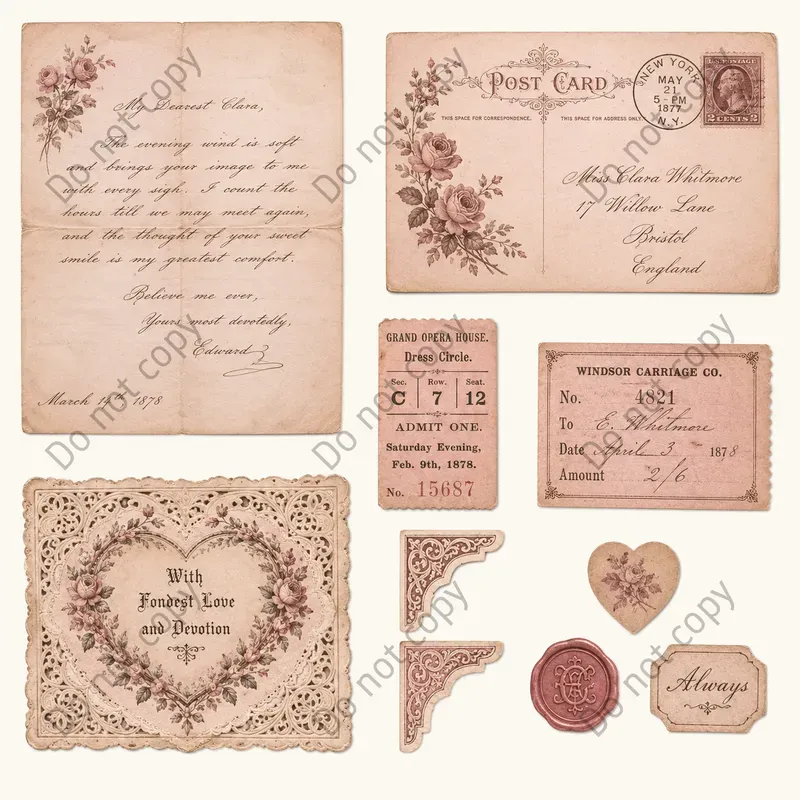 My Dearest Clara,
The evening wind is soft
and brings your image to me
with every sigh. I count the
hours till we may meet again,
and the thought of your sweet
smile is my greatest comfort.
Believe me ever,
Yours most devotedly,
Edward
March 14th 1878
POST CARD
THIS SPACE FOR CORRESPONDENCE.
THIS SPACE FOR ADDRESS ONLY.
NEW YORK
MAY
21
5 - PM
1877
N.Y.
U.S. POSTAGE
2 CENTS 2
Miss Clara Whitmore
17 Willow Lane
Bristol
England
GRAND OPERA HOUSE.
Dress Circle.
Sec. Row. Seat.
C 7 12
ADMIT ONE.
Saturday Evening,
Feb. 9th, 1878.
No. 15687
WINDSOR CARRIAGE CO.
No. 4821
To E. Whitmore
Date April 3 1878
Amount 2/6
With
Fondest Love
and Devotion
Always
Do not copy
Do not copy
Do not copy
Do not copy
Do not copy
Do not copy
Do not copy
Do not copy
Do not copy